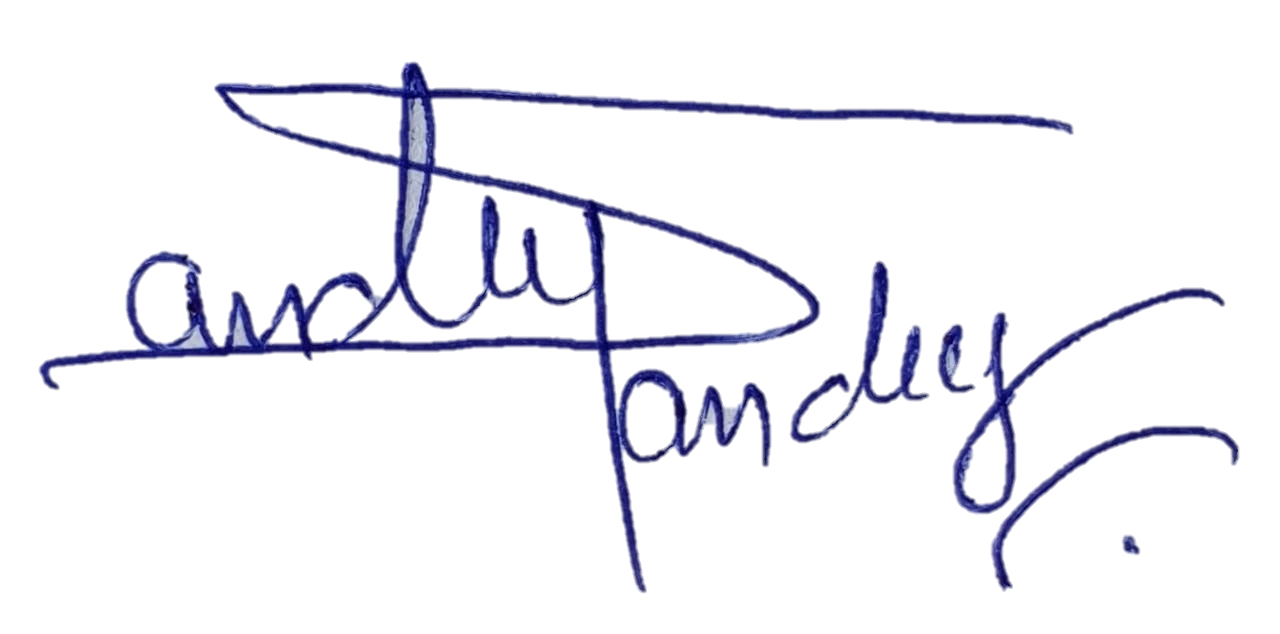 Sandeep Pandey